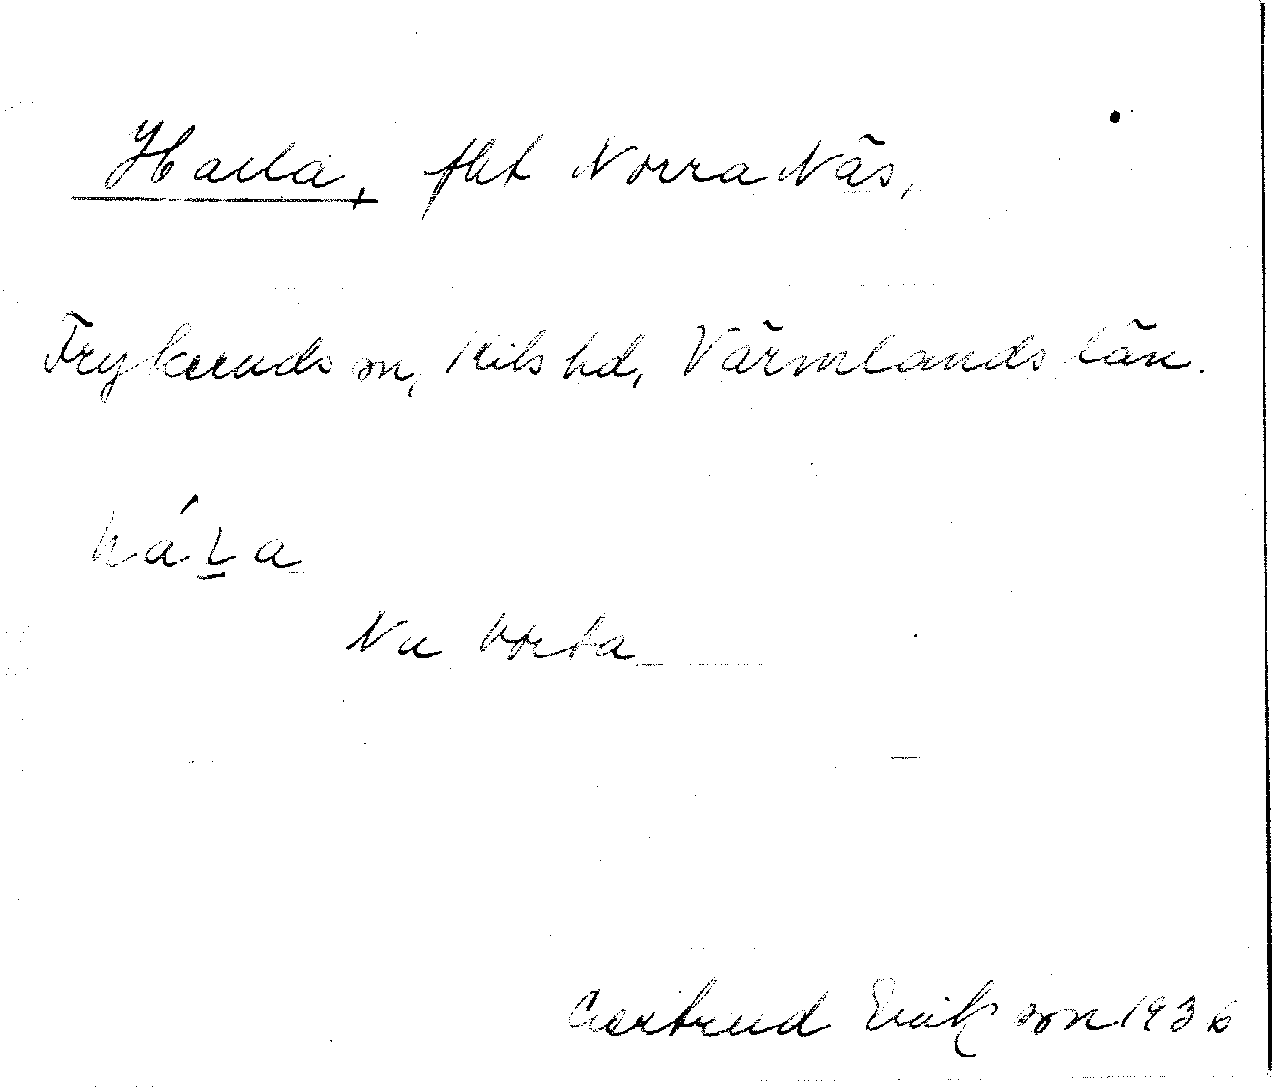 Harla, fht Norra Näs,
Frykeruds sn, Kils hd, Värmlands län.
háLa
Nu borta
Gertrud Erikson 1936